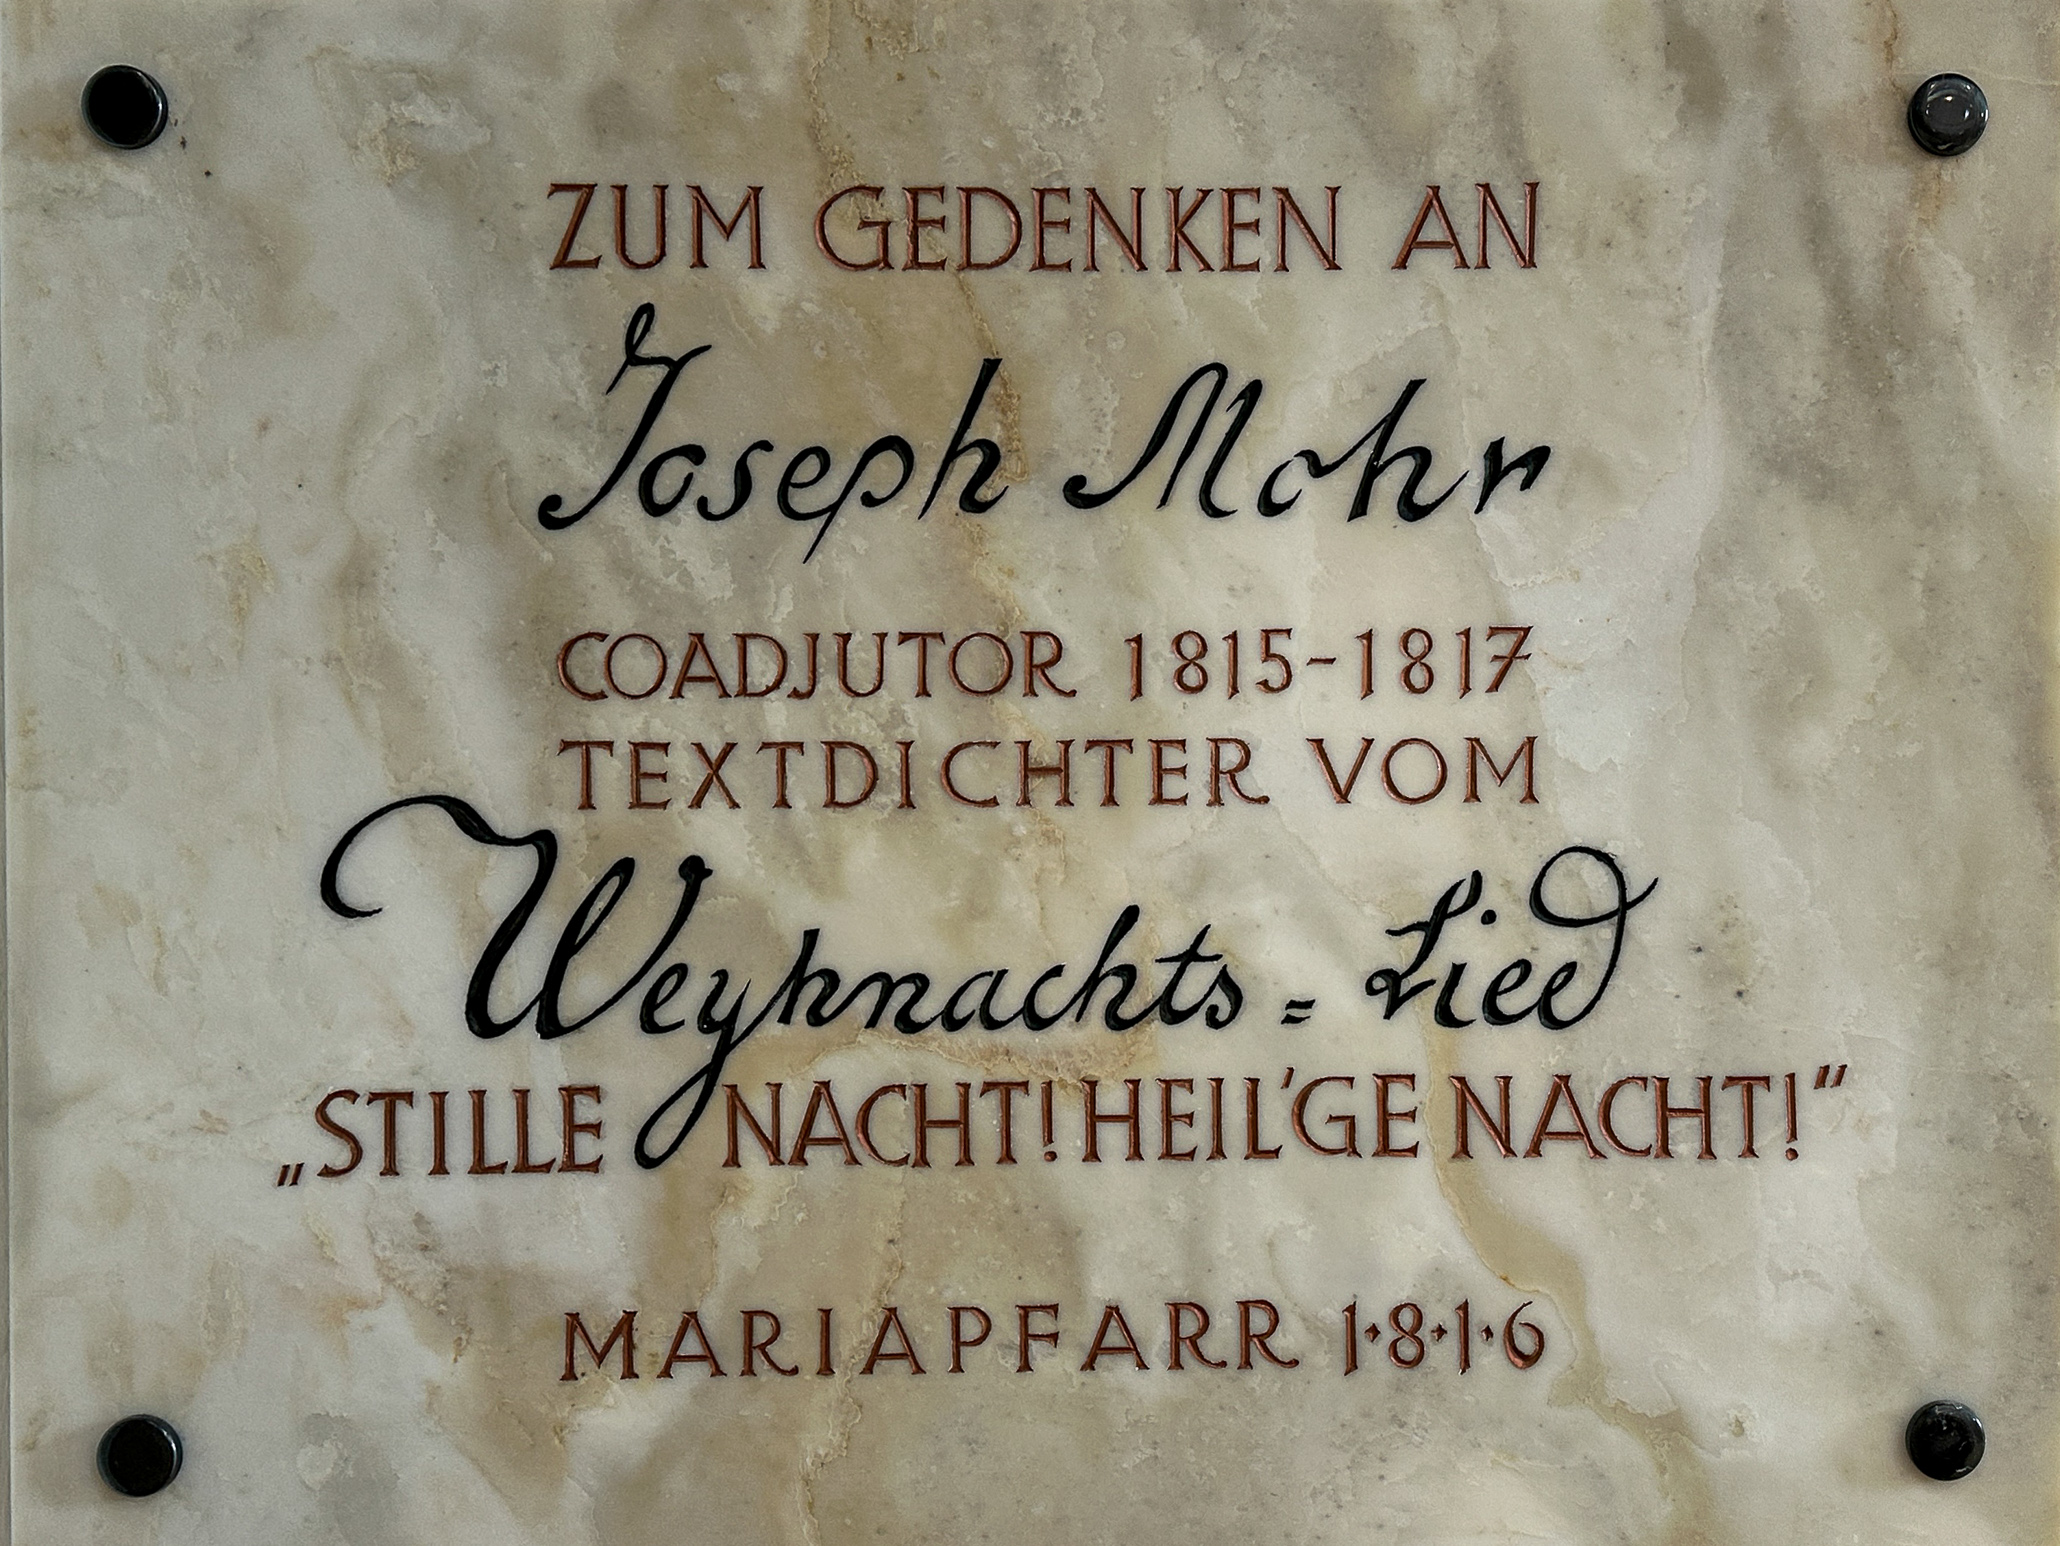 ZUM GEDENKEN AN
Joseph Mohr
COADJUTOR 1815-1817
TEXTDICHTER VOM
Weyhnachts = Lied
„STILLE NACHT! HEIL'GE NACHT!"
MARIAPFARR 1·8·1·6